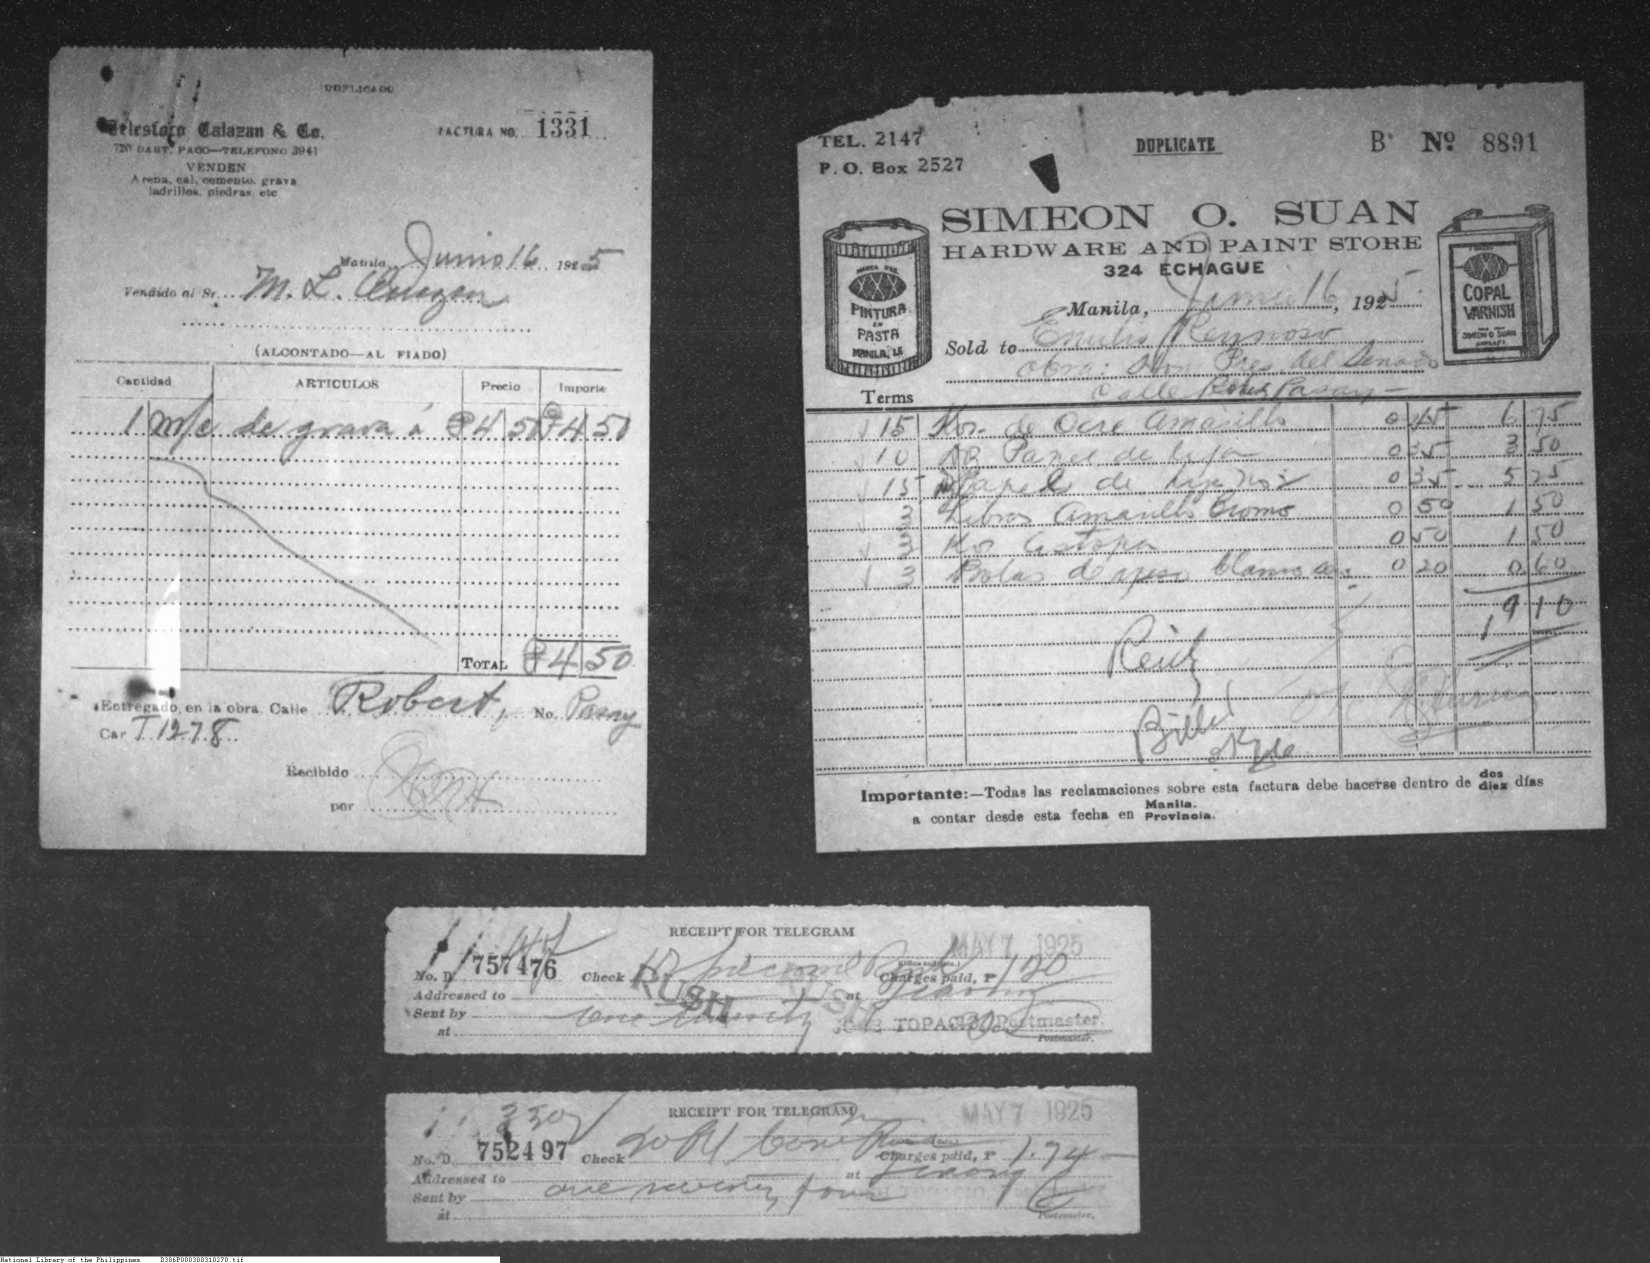 DUPLICADO
Telesforo Calazan & Co.
FACTURA NO. 1331
720 DART, PACO—TELEFONO 3941
VENDEN
Arena, cal, cemento, grava
ladrillos, piedras, etc
Manila, Junio 16, 1925
Vendido al Sr. M. L. Quezon
(ALCONTADO—AL FIADO)
Cantidad ARTICULOS Precio Importe
1 m/c de grava á ₱4 50 ₱4 50
TOTAL ₱4 50
Entregado, en la obra. Calle Robert, No. Pasay
Car T. 1278
Recibido
por
TEL. 2147
P. O. Box 2527
DUPLICATE
B Nº 8891
SIMEON O. SUAN
HARDWARE AND PAINT STORE
324 ECHAGUE
PINTURA
EN
PASTA
MANILA, I.F.
COPAL
VARNISH
SIMEON O. SUAN
Manila, Junio 16, 1925
Sold to Emilio Reynoso
Obra: Hon. Pres. del Senado
Calle Robert Pasay
Terms
15 Kos. de Ocre Amarillo 0 45 6 75
10 Papel de lija 0 35 3 50
15 Papel de lija 0 35 5 25
3 Libras Amarillo Cromo 0 50 1 50
3 Kos. Estopa 0 50 1 50
3 Bolas de yeso blanco 0 20 0 60
19 10
Importante:—Todas las reclamaciones sobre esta factura debe hacerse dentro de dos diez días
a contar desde esta fecha en Manila. Provincia.
RECEIPT FOR TELEGRAM
MAY 7 1925
No. D. 757476 Check Charges paid, P 1.20
Addressed to at
RUSH RUSH
Sent by one twenty
TOPACIO, Postmaster.
at Postmaster.
RECEIPT FOR TELEGRAM
MAY 7 1925
No. D. 752497 Check Charges paid, P 1.74
Addressed to at
Sent by one seventy four
at Postmaster.
National Library of the Philippines D386P000300310270.tif